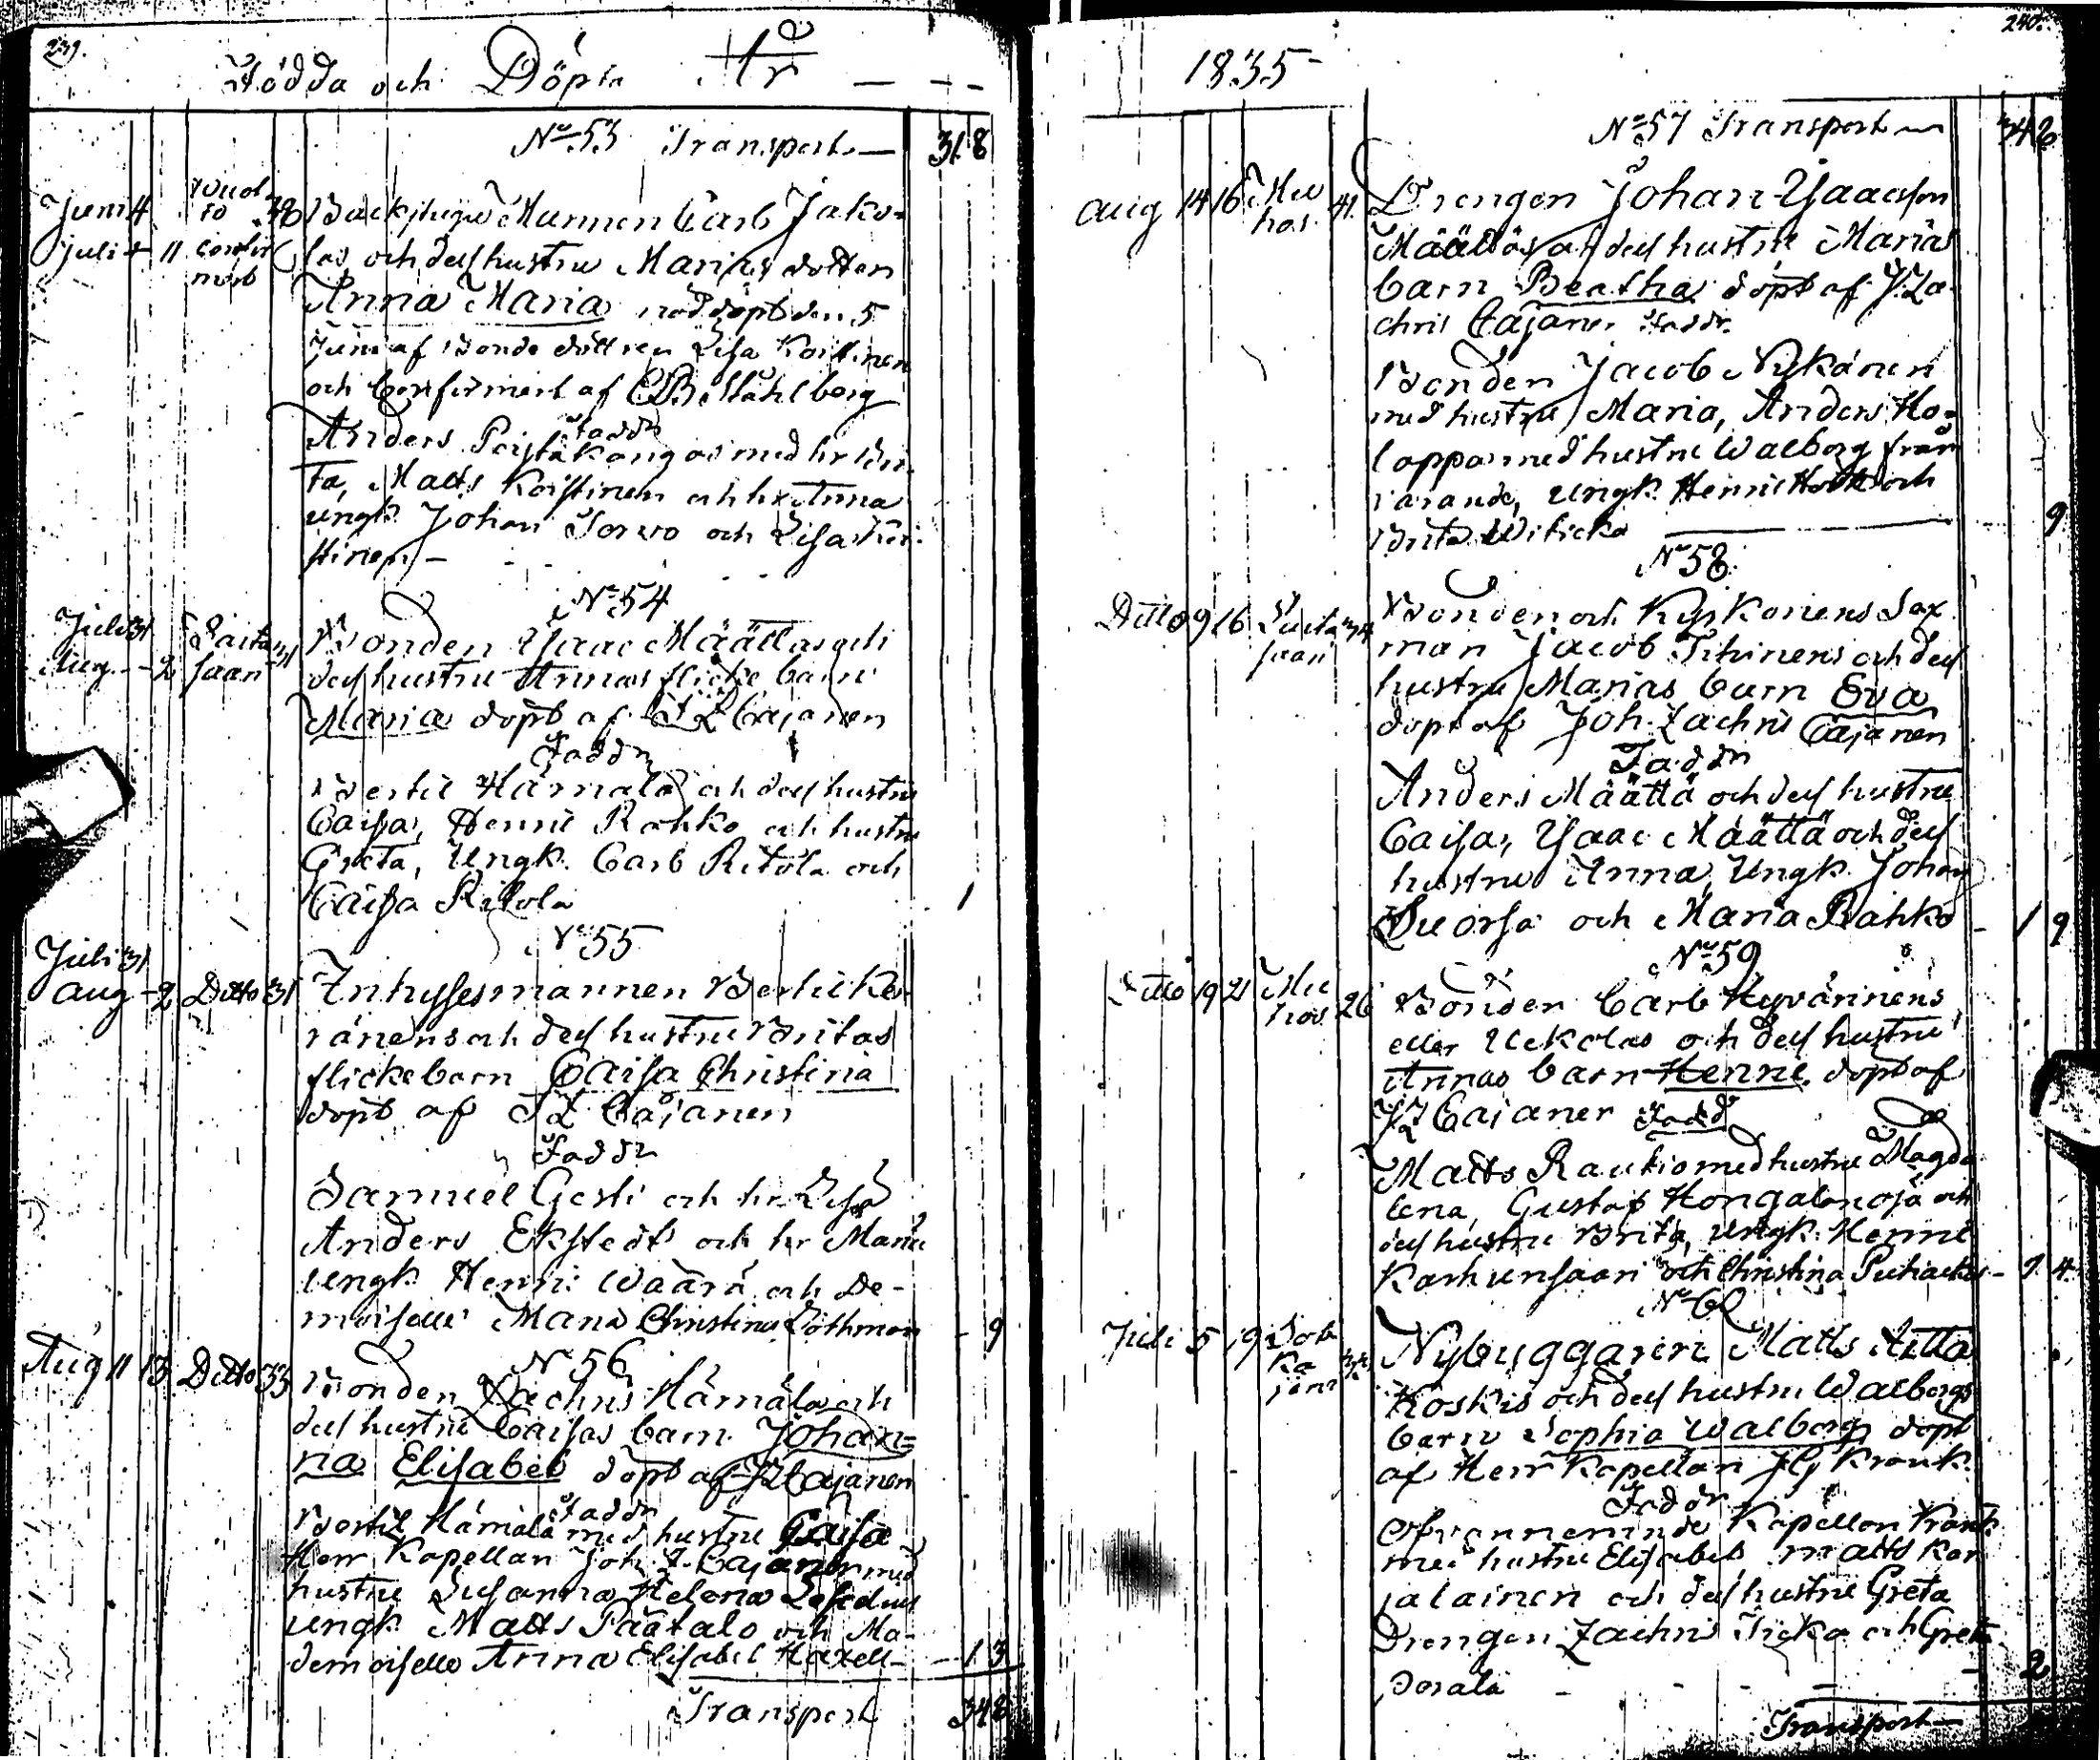 239.
Födda och Döpta År
N:o 53 Transport 31 8
Juni 4
juli 11
38
Backstugu Mannen Carl Jako-
las och dess hustru Marias dotter
Anna Maria nöddöpt den 5
Juni af Bonde dottren Lisa Koistinen
och Confirmert af CB Ståhlberg
Faddr
Anders Peistakangas med hr Bri-
ta, Matts Koistinen och hr Anna
Ungk. Johan Torvo och Lisa Koi-
stinen
N:o 54
Juli 31
Aug. 2 saari 31
Bonden Isaac Määttas och
dess hustru Annas flicke barn
Maria döpt af J Z Cajanen
Faddr
Bertil Härmälä och dess hustru
Caisa, Henric Rahko och hustru
Greta, Ungk. Carl Ritola och
Caisa Ritola 1
N:o 55
Juli 31
Aug 2 Ditto 31
Inhysesmannen Bertil Ke-
ränens och dess hustru Britas
flickebarn Caisa Christina
döpt af J Z Cajanen
Faddr
Samuel Gesti och hr Lisa
Anders Ekstedt och hr Maria
Ungk Henric Waara och De-
moiselle Maria Christina Lothman 9
N:o 56
Aug 11 13 Ditto 33
Bonden Zachris Härmälä och
dess hustru Caisas barn Johan-
na Elisabet döpt af JZ Cajanen
Faddr
Bertil Härmälä med hustru Caisa
Herr Kapellan Joh Z. Cajaner med
hustru Susanna Helena
Ungk Matts Päätalo och Ma-
demoiselle Anna Elisabet Haxell 1 3
Transport 348
240.
1835
N:o 57 Transport 34 8
Aug 14 16 41
Drengen Johan Isaacsson
Määttäs och dess hustru Marias
barn Beatha döpt af J. Za-
chris Cajaner Faddr.
Bonden Jacob Nykänen
med hustru Maria, Anders Ho-
loppa med hustru Walborg från
varande, Ungk. Henric och
Brita Witicka 9
N:o 58
Ditto 9 16 saari 34
Bonden och Kyrkoriens Sex
man Jacob Tihinens och dess
hustru Marias barn Eva
döpt af Joh. Zachris Cajanen
Faddr
Anders Määttä och dess hustru
Caisa, Isaac Määttä och dess
hustru Anna, Ungk. Johan
Suorsa och Maria Rahko 1 9
N:o 59
Ditto 19 21 26
Bonden Carl Hyvärinens
eller Uckolas och dess hustru
Annas barn Henric döpt af
JZ Cajaner Fadd
Matts Rautio med hustru Magda
lena, Gustaf Hongalanoja och
dess hustru Brita, Ungk. Henric
Karhunsaari och Christina 4
N:o 60
Juli 5 19 Sot
ka
järvi
Nybyggaren Matts Aitta
Koskis och dess hustru Walborgs
barn Sophia Walborg döpt
af Herr Kapellan Krank.
Faddr
Ofvannemnde Kapellan Krank
med hustru Elisabet, Matts Kar
jalainen och dess hustru Greta
Drengen Zachris Ticka och Greta
2
Transport